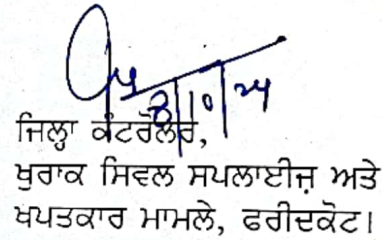 ਜਿਲ੍ਹਾ ਕੰਟਰੋਲਰ,
ਖੁਰਾਕ ਸਿਵਲ ਸਪਲਾਈਜ਼ ਅਤੇ
ਖਪਤਕਾਰ ਮਾਮਲੇ, ਫਰੀਦਕੋਟ।